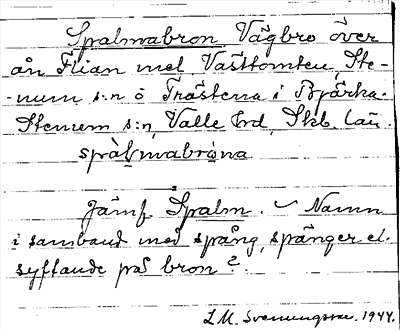 Spalmabron Vägbro över
ån Flian mel. Västtomten, Ste-
-num s:n o Trästena i Bjärka-
Stenum s:n, Valle hrd, Skb. län.
spàḷmabròna
Jämf. Spalm. Namn
i samband med spång, spänger el.
syftande på bron?
L.M. Svenungsson. 1944.